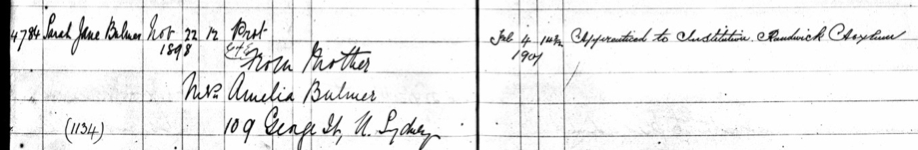 4784 Sarah Jane Bulmer Nov 22 12 Prot Feb 4 14 2/12 Apprenticed to Institution Randwick Asylum
1898 C of E 1901
From Mother
Mrs Amelia Bulmer
(1134) 109 George St, N. Sydney